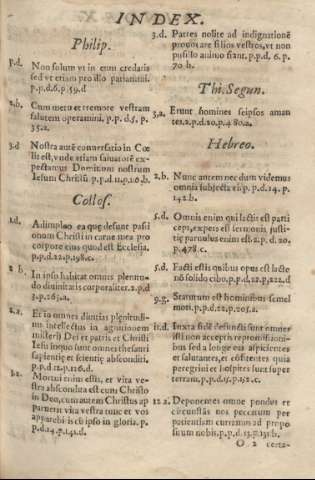 INDEX.
Philip.
p.d. Non solum vt in eum credatis
sed vt etiam pro illo patiamini.
p.p.d.6.p.59.d
2.b. Cum metu et tremore vestram
salutem operamini, p.p. d.5, p.
35.a.
3.d Nostra autē conversatio in Cœ
lis est, vnde etiam salvatorē ex-
pectamus Dominum nostrum
Iesum Christū. p.p.d.11.p.116.b.
Collos.
1.d. Adimpleo ea quę desunt passi
onum Christi in carne mea pro
corpore eius quod est Ecclesia.
p.p.d.22.p.198.c.
2 b. In ipso habitat omnis plenitu-
do divinitatis corporaliter. 2.p.d
3.p.265.a.
2.a. Et in omnes divitias plenitudi-
nis intellectus in agnitionem
misterij Dei et patris et Christi
Iesu in quo sunt omnes thesauri
sapiẽtię et scientię absconditi.
p.p.d 12.p.126.d.
3.a. Mortui enim estis, et vita ve-
stra abscondita est cum Christo
in Deo, cum autem Christus ap
paruerit vita vestra tunc et vos
apparebitis cū ipso in gloria. p.
p.d.14.p.141.d.
3.d. Patres nolite ad indignationē
provocare filios vestros, vt non
pusillo animo fiant. p.p.d. 6.p.
70.b.
Thi. Segun.
3.a. Erunt homines seipsos aman
tes. 2.p.d.20.p.480.a.
Hebreo.
2.b. Nunc autem nec dum videmus
omnia subjecta ei. p.p.d.14.p.
142.b.
5.d. Omnis enim qui lactis est parti
ceps, expers est sermonis, justi-
tię parvulus enim est. 2.p.d.20.
p.478.c.
5.d. Facti estis quibus opus est lacte
nō solido cibo. p.p.d.22.p.222.d
9.g. Statutum est hominibus semel
mori. p.p.d.22.p.205.a.
11.d. Iuxta fidē defuncti sunt omnes
isti non acceptis repromissioni-
bus sed a longe eas aspicientes
et salutantes, et cōfitentes quia
peregrini et hospites sunt super
terram, p.p.d.15.p.152.c.
12.a. Deponentes omne pondus et
circunstās nos peccatum per
patientiam curramus ad propo
situm nobis, p.p.d.13.p.135.b.
O 2 certa-